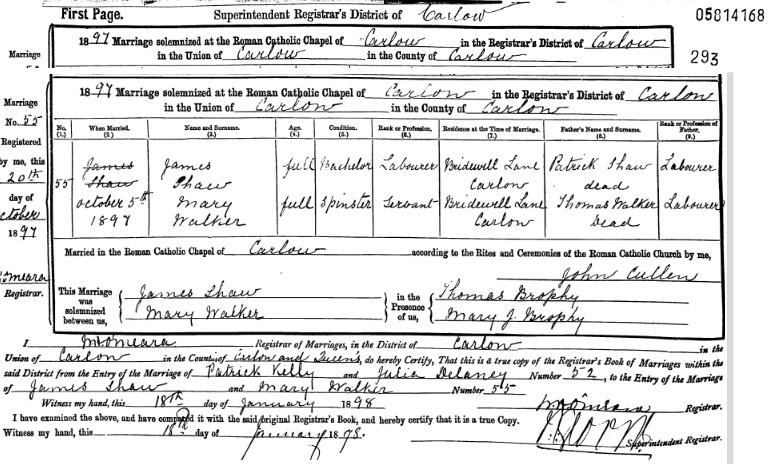 First Page. Superintendent Registrar's District of Carlow 05814168
1897 Marriage solemnized at the Roman Catholic Chapel of Carlow in the Registrar's District of Carlow
Marriage in the Union of Carlow in the County of Carlow 293
1897 Marriage solemnized at the Roman Catholic Chapel of Carlow in the Registrar's District of Carlow
Marriage in the Union of Carlow in the County of Carlow
No. 55
Registered by me, this 20th day of October 1897
No. When Married. Name and Surname. Age. Condition. Rank or Profession. Residence at the Time of Marriage. Father's Name and Surname. Rank or Profession of Father.
(1.) (2.) (3.) (4.) (5.) (6.) (7.) (8.) (9.)
55 James Shaw October 5th 1897
James Shaw full Bachelor Labourer Bridewell Lane Carlow Patrick Shaw dead Labourer
Mary Walker full Spinster Servant Bridewell Lane Carlow Thomas Walker Dead Labourer
Married in the Roman Catholic Chapel of Carlow according to the Rites and Ceremonies of the Roman Catholic Church by me,
John Cullen
Registrar. This Marriage was solemnized between us, James Shaw Mary Walker in the Presence of us, Thomas Brophy Mary J. Brophy
I Registrar of Marriages, in the District of Carlow in the
Union of Carlow in the County of Carlow and Queen's, do hereby Certify, That this is a true copy of the Registrar's Book of Marriages within the
said District from the Entry of the Marriage of Patrick Kelly and Julia Delaney Number 52, to the Entry of the Marriage
of James Shaw and Mary Walker Number 55
Witness my hand, this 18th day of January 1898 Registrar.
I have examined the above, and have compared it with the said original Registrar's Book, and hereby certify that it is a true Copy.
Witness my hand, this 18th day of January 1898. Superintendent Registrar.